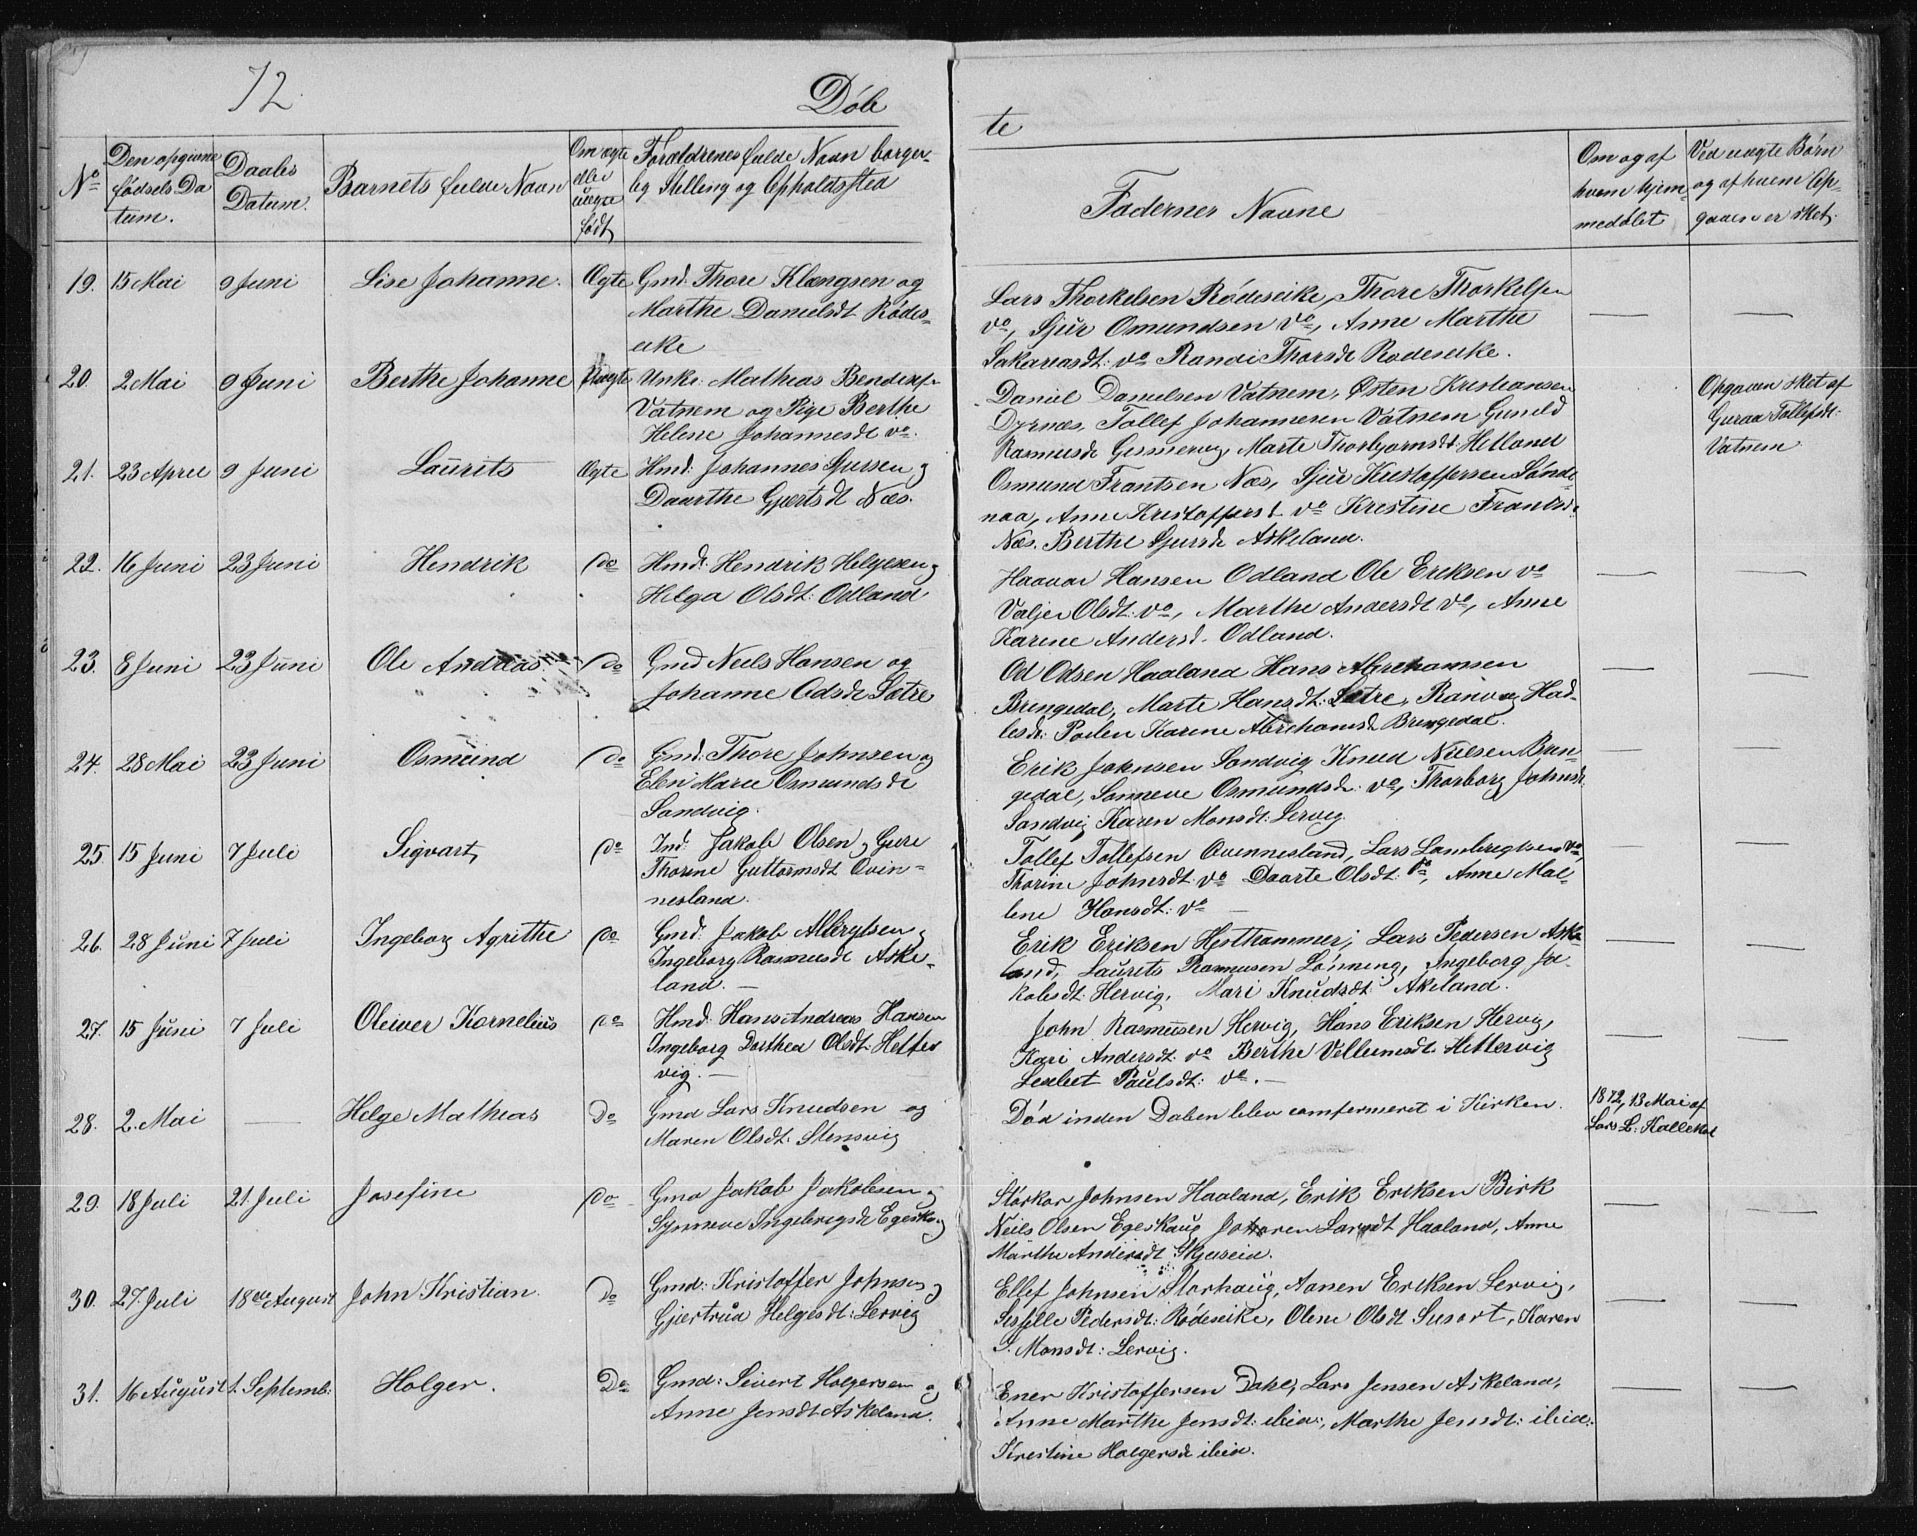 72
Døb
te
No
Den opgivne
fødsels Da
tum.
Daabs
Datum.
Barnets fulde Navn
Om ægte
eller
uægte
født
Forældrenes fulde Navn borger-
lig Stilling og Opholdssted
Faderner Navne
Om og af
hvem hjem-
medøbt
Ved uægte Børn
og af hvem Op-
gaven er sket.
19. 15 Mai 9 Juni Lise Johanne. Ægte Gmd: Thore Klængsen og
Marthe Danielsdt Rødes-
eike
Lars Thorkelsen Rødeseike, Thore Thorkelsen
do, Sjur Omundsen do, Anne Marthe
Sakariasdt: do Randi Thorsdt Rødeseike.
20. 2 Mai 9 Juni Berthe Johanne Uægte Unke: Mathias Bendixs-
Vatnem og Pige Berthe
Helene Johannesdt do.
Daniel Danielsen Vatnem, Østen Kristiansen
Dyrnæs, Tollef Johannesen Vatnem Gunild
Rasmusdt Gismervig, Marte Thorbjørnsdt: Helland
Opgaven sket af
Guraa Tollefsdt:
Vatnem
21. 23 April 9 Juni Laurits Ægte Hmd: Johannes Sjursen og
Daarthe Gjertsdt Næs.
Osmund Frantsen Næs, Sjur Kristoffersen Sønde-
naa, Anne Kristoffersdt do Kristine Frantsdt:
Næs. Berthe Sjursdt Askeland.
22. 16 Juni 23 Juni Hendrik do Hmd: Hendrik Helgesen og
Helga Olsdt: Odland
Haavar Hansen Odland Ole Eriksen do
Valjer Olsdt: do, Marthe Andersdt do, Anne
Karine Andersd. Odland.
23. 8 Juni 23 Juni Ole Andreas do Gmd Neils Hansen og
Johanne Odsdt Sætre
Od Odsen Haaland Hans Abrehamsen
Bringedal, Marte Hansdt: Sætre, Ranveig Had-
lesdt: Poilen Karine Abrehamsdt Bringedal.
24. 28 Mai 23 Juni Osmund do Gmd: Thore Johnsen og
Elen Marie Osmundsdt
Sandvig.
Erik Johnsen Sandvig Knud Nielsen Brin-
gedal, Sanneve Osmundsdt: do, Thorborg Johnsdt
Sandvig Karen Monsdt: Lervig.
25. 15 Juni 7 Juli Sigvart do Ind. Jakob Olsen og Gure
Thorine Guttormsdt Ovin-
nesland.
Tollef Tollefsen Ovennesland, Lars Lambregtsen do,
Thorine Johnsdt: do Daarte Olsdt: do, Anne Mal-
lene Hansdt: do
26. 28 Juni 7 Juli Ingeborg Agrithe do Gmd: Jakob Albrigtsen og
Ingeborg Rasmusdt Aske-
land.
Erik Eriksen Hesthammer, Lars Pedersen Aske
land, Laurits Rasmusen Lønning, Ingeborg Ja-
kobsdt: Hervig, Mari Knudsdt: Akeland.
27. 15 Juni 7 Juli Oleiver Kornelius do Hmd: Hans Andreas Hansen
Ingeborg Dorthea Olsdt: Hetter
vig.
John Rasmusen Hervig, Hans Eriksen Hervig,
Kari Andersdt do Berthe Vellumsdt: Hettervig
Lesebet Paulsdt: do.
28. 2. Mai — Helge Mathias Do Gmd Lars Knudsen og
Maren Olsdt: Stensvig
Død inden Daben blev comfermeret i Kirken.
1872, 13 Mai af
Lars L: Kallekot
29. 18 Juli 21. Juli Josefine do Gmd Jakob Jakobsen og
Synneve Ingebrigsdt Egeskog
Størkor Johnsen Haaland, Erik Eriksen Birk
Neils Olsen Egeskaug Johanen Larsdt Haaland, Anne
Marthe Andersdt Skjelseid.
30. 27. Juli 18de August John Kristian. Do Gmd: Kristoffer Johnsen og
Gjertrud Helgesdt: Lervig
Ellef Johnsen Storhaug, Aanen Eriksen Lervig,
Sisselle Pedersdt: Rødeseike, Olene Olsdt Susort, Karen
S. Monsdt: Lervig.
31. 16 August 1. Septemb: Holger. Do Gmd: Seivert Holgersen og
Anne Jensdt Askeland.
Ener Kristoffersen Dahl, Lars Jensen Askeland,
Anne Marthe Jensdt: ibid:, Marthe Jensdt: ibid:
Kristine Holgersdt ibid.